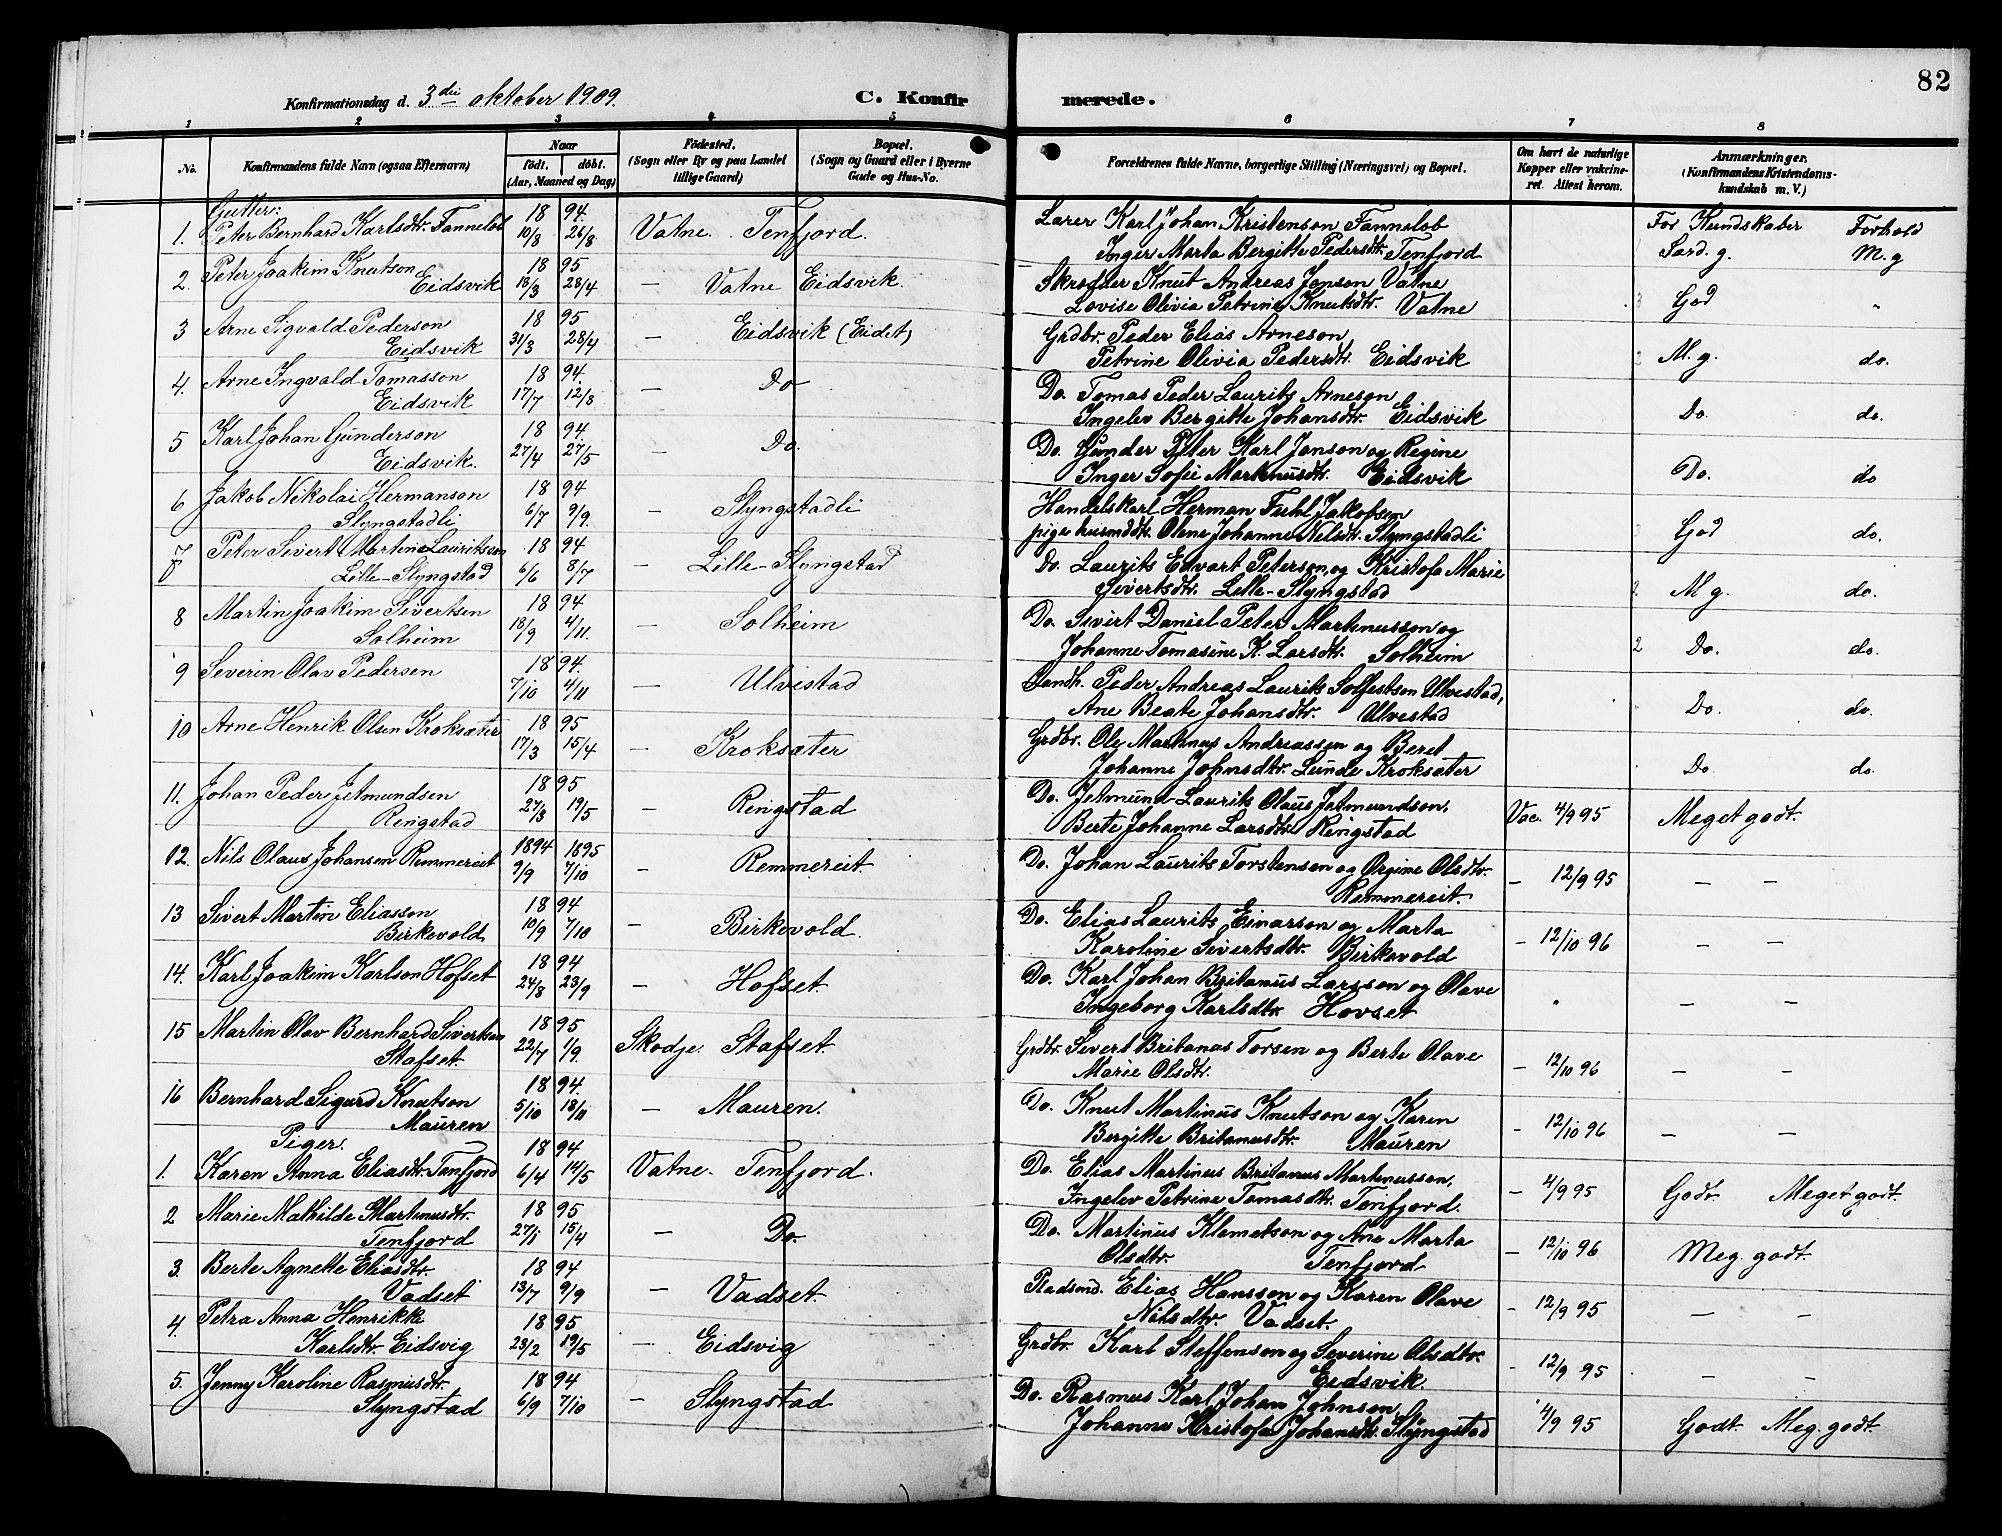 82
Konfirmationsdag d. 3die oktober 1909.
C. Konfir merede.
1 2 3 4 5 6 7 8
No. Konfirmandens fulde Navn (ogsaa Efternavn)
Naar
født. døbt.
(Aar, Maaned og Dag)
Fødested.
(Sogn eller By og paa Landet
tillige Gaard)
Bopæl.
(Sogn og Gaard eller i Byerne
Gade og Hus-No.
Forældrenes fulde Navne, borgerlige Stilling (Næringsvei) og Bopæl.
Om havt de naturlige
Kopper eller vakcine-
ret. Attest herom.
Anmærkninger.
(Konfirmandens Kristendoms-
kundskab m. V.)
Gutter: 18 94.
1. Peter Bernhard Karlsdtr. Fanneløb 10/8 26/8 Vatne. Tenfjord.
Lærer Karl Johan Kristenson Fanneløb
Inger Marta Bergitte Pedersdtr. Tenfjord
For Kundskaber Forhold
Særd. g. M. g
2. Peter Joakim Knutson 18 95
Eidsvik 18/3 28/4 — Vatne Eidsvik.
Skrædder Knut Andreas Jonson Vatne
Lovise Olivia Petrine Knutsdtr. Vatne
God "
3 Arne Sigvald Pederson 18 95
Eidsvik 31/3 28/4 — Eidsvik (Eidet)
Grdbr. Peder Elias Arneson
Petrine Olivia Pedersdtr. Eidsvik
M. g. do.
4. Arne Ingvald Tomasson 18 94.
Eidsvik 17/7 12/8 — Do
Do. Tomas Peder Laurits Arneson
Ingelev Bergitte Johansdtr. Eidsvik
Do. do.
5 Karl Johan Gunderson 18 94.
Eidsvik. 27/4 27/5 — Do.
Do. Gunder Peter Karl Jonson og Regine
Inger Sofie Markmusdtr. Eidsvik
Do. do
6 Jakob Nikolai Hermanson 18 94
Slyngstadli 6/7 9/9. — Slyngstadli
Handelskarl Herman Juhl Jakobsen
pige husmdtr. Oline Johanne Nilsdtr. Slyngstadli
God do.
7 Peter Sivert Martin Lauritsson 18 94
Lille-Slyngstad 6/6 8/7 — Lille-Slyngstad
Do. Laurits Edvart Peterson, og Kristofa Marie
Sivertsdtr. Lille-Slyngstad
M g. do.
8 Martin Joakim Sivertsen 18 94
Solheim 18/9 4/11. — Solheim
Do. Sivert Daniel Peter Markmusson og
Johanne Tomasine K. Larsdtr. Solheim
2 Do. do.
9 Severin Olav Pedersen 18 94.
7/10 4/11 — Ulvestad
Landh. Peder Andreas Laurits Solfestson Ulvestad,
Ane Beate Johansdtr. Ulvestad
Do. do.
10 Arne Henrik Olsen Kroksæter 18 95
17/3 15/4 — Kroksæter
Grdbr. Ole Martinus Andreassen og Beret
Johanne Johnsdtr. Lunde Kroksæter
Do do.
11. Johan Peder Jetmundsen 18 95
Ringstad 27/3 19/5 — Ringstad
Do. Jetmund Laurits Olaus Jetmundson.
Berte Johanne Larsdtr. Ringstad
Vac. 4/9 95 Meget godt.
12. Nils Olaus Johansen Remmereit 1894 1895
9/9 7/10 — Remmereit.
Do. Johan Laurits Torstenson og Ørgine Olsdtr.
Remmereit.
— 12/9 95 — —
13 Sivert Martin Eliasson 18 94
Birkevold 10/9 7/10 — Birkevold.
Do. Elias Laurits Einarson og Marta
Karoline Sivertsdtr. Birkevold
— 12/10 96 — —
14. Karl Joakim Karlson Hofset 18 94
24/8 23/9 — Hofset.
Do. Karl Johan Britanus Larsson og Olave
Ingeborg Karlsdtr. Hovset
" — —
15 Martin Olav Bernhard Sivertsen 18 95
Stafset. 22/7 1/9. Skodje. Stafset.
Grdbr. Sivert Britanus Torsen og Berte Olave
Marie Olsdtr.
— 12/10 96 — —
16 Bernhard Sigurd Knutson 18 94.
Mauren 5/10 18/11 — Mauren.
Do. Knut Martinus Knutson og Karen
Bergitte Britanusdtr. Mauren
— 12/10 96 — —
Piger. 18 94
1. Karen Anna Eliasdtr. Tenfjord 6/4 14/5 Vatne. Tenfjord.
Do. Elias Martinus Britanus Markmusson,
Ingelev Petrine Tomasdtr. Tenfjord.
— 4/9 95 Godt. Meget godt.
2 Marie Mathilde Martinusdtr. 18 95
Tenfjord 27/1 15/4 — Do.
Do. Martinus Klemetson og Ane Marta
Olsdtr. Tenfjord
— 12/10 96 Meg. godt.
3. Berte Agnette Eliasdtr. 18 94
Vadset 13/7 9/9 — Vadset.
Pladsmd. Elias Hansson og Karen Olave
Nilsdtr. Vadset.
— 12/9 95 — —
4. Petra Anna Henrikke 18 95
Karlsdtr. Eidsvig 23/2 19/5 — Eidsvig
Grdbr. Karl Steffenson og Severine Olsdtr.
Eidsvik.
— 12/9 95 — —
5. Jenny Karoline Rasmusdtr. 18 94
Slyngstad 6/9 7/10 — Slyngstad
Do. Rasmus Karl Johan Johnson,
Johanne Kristofa Johansdtr. Slyngstad
4/9 95 Godt. Meg. godt.